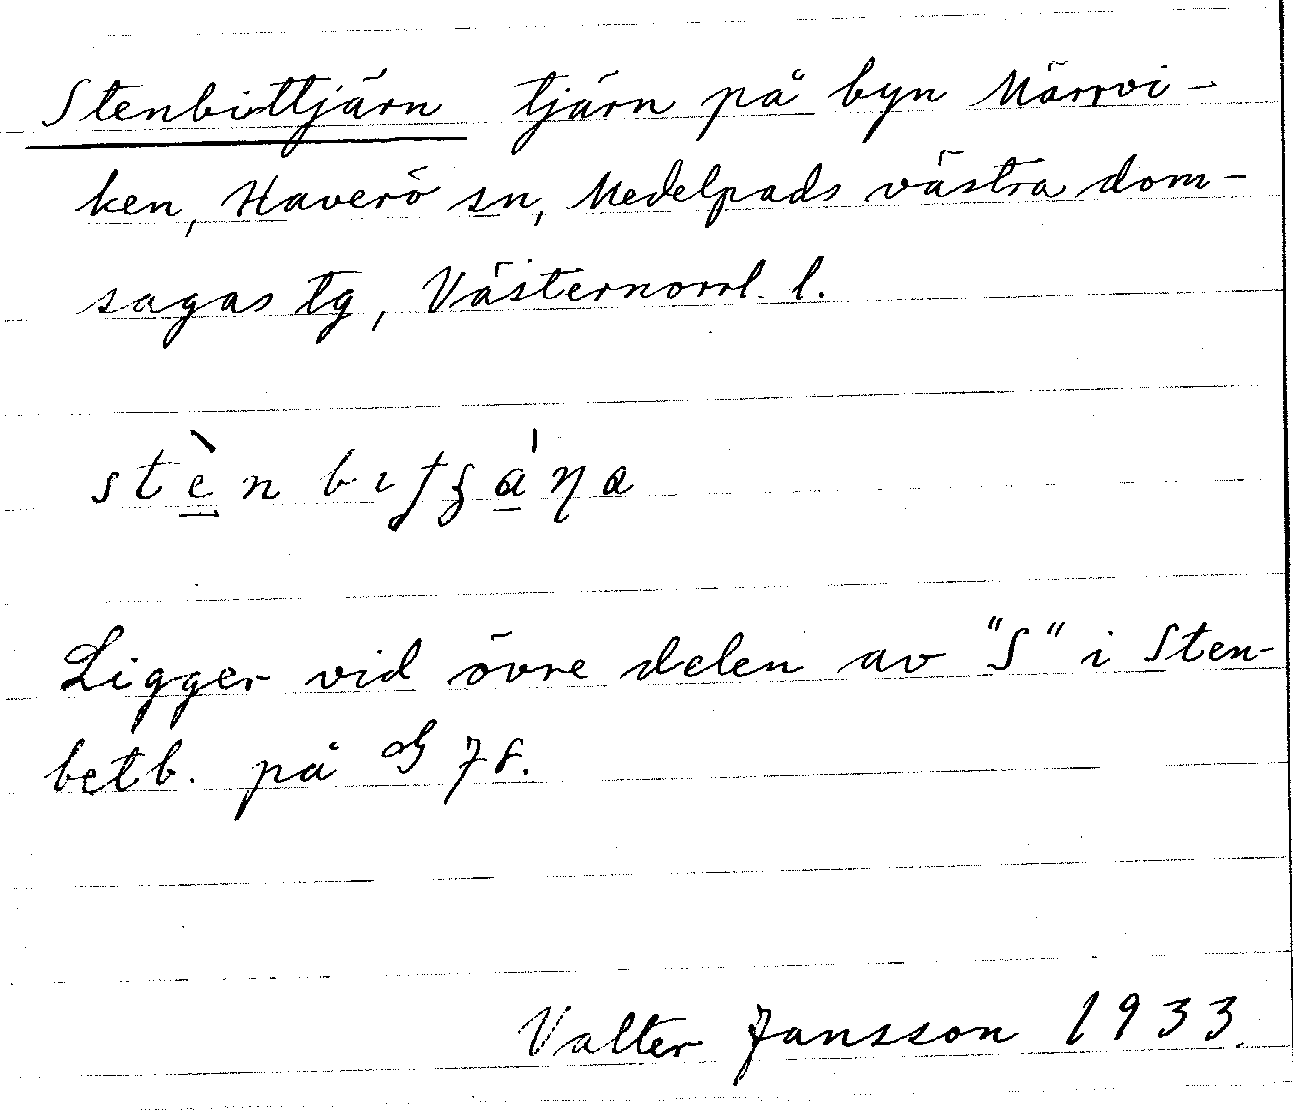 Stenbittjärn tjärn på byn Märrvi-
ken, Haverö sn, Medelpads västra dom-
sagas tg, Västernorrl. l.
Ligger vid övre delen av "S" i Sten-
betb. på G 78.
Valter Jansson 1933.